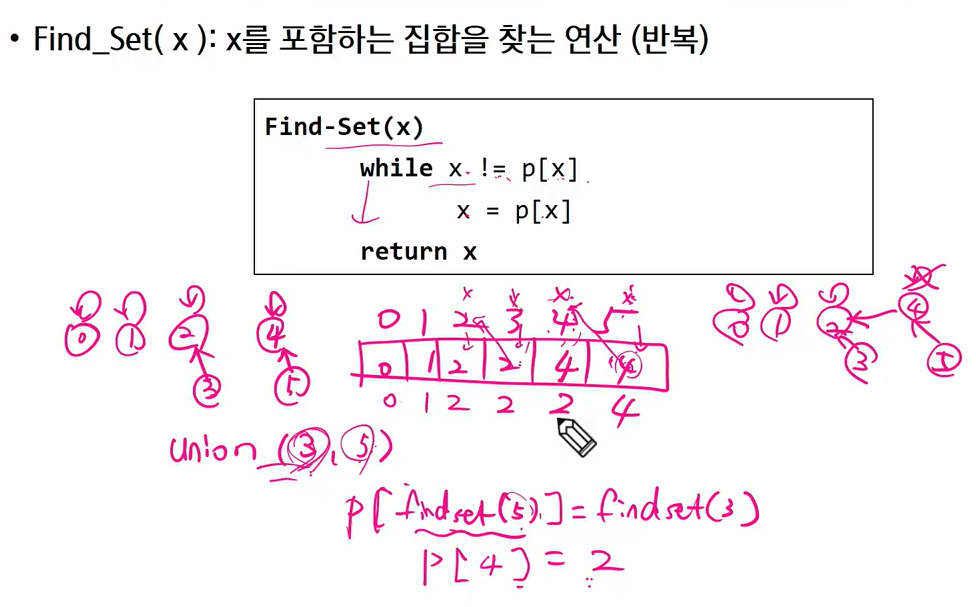 • Find_Set( x ): x를 포함하는 집합을 찾는 연산 (반복)
Find-Set(x)
while x != p[x]
x = p[x]
return x
0 1 2 3 4 5
0 1 2 2 4 4
0 1 2 2 2 4
0 1 2 4
3 5
0 1 2 4
3 5
union (3, 5)
p[findset(5)] = findset(3)
p[4] = 2